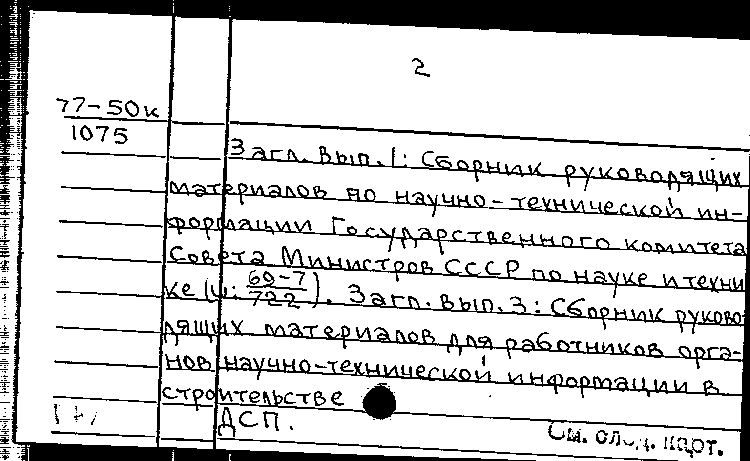 2
77-50к
1075
Загл. вып. 1: Сборник руководящих
материалов по научно-технической ин-
формации Государственного комитета
Совета Министров СССР по науке и техни
ке (ц: 69-7/722). Загл. вып. 3: Сборник руково
дящих материалов для работников орга-
нов научно-технической информации в
строительстве
ДСП.
См. след. карт.